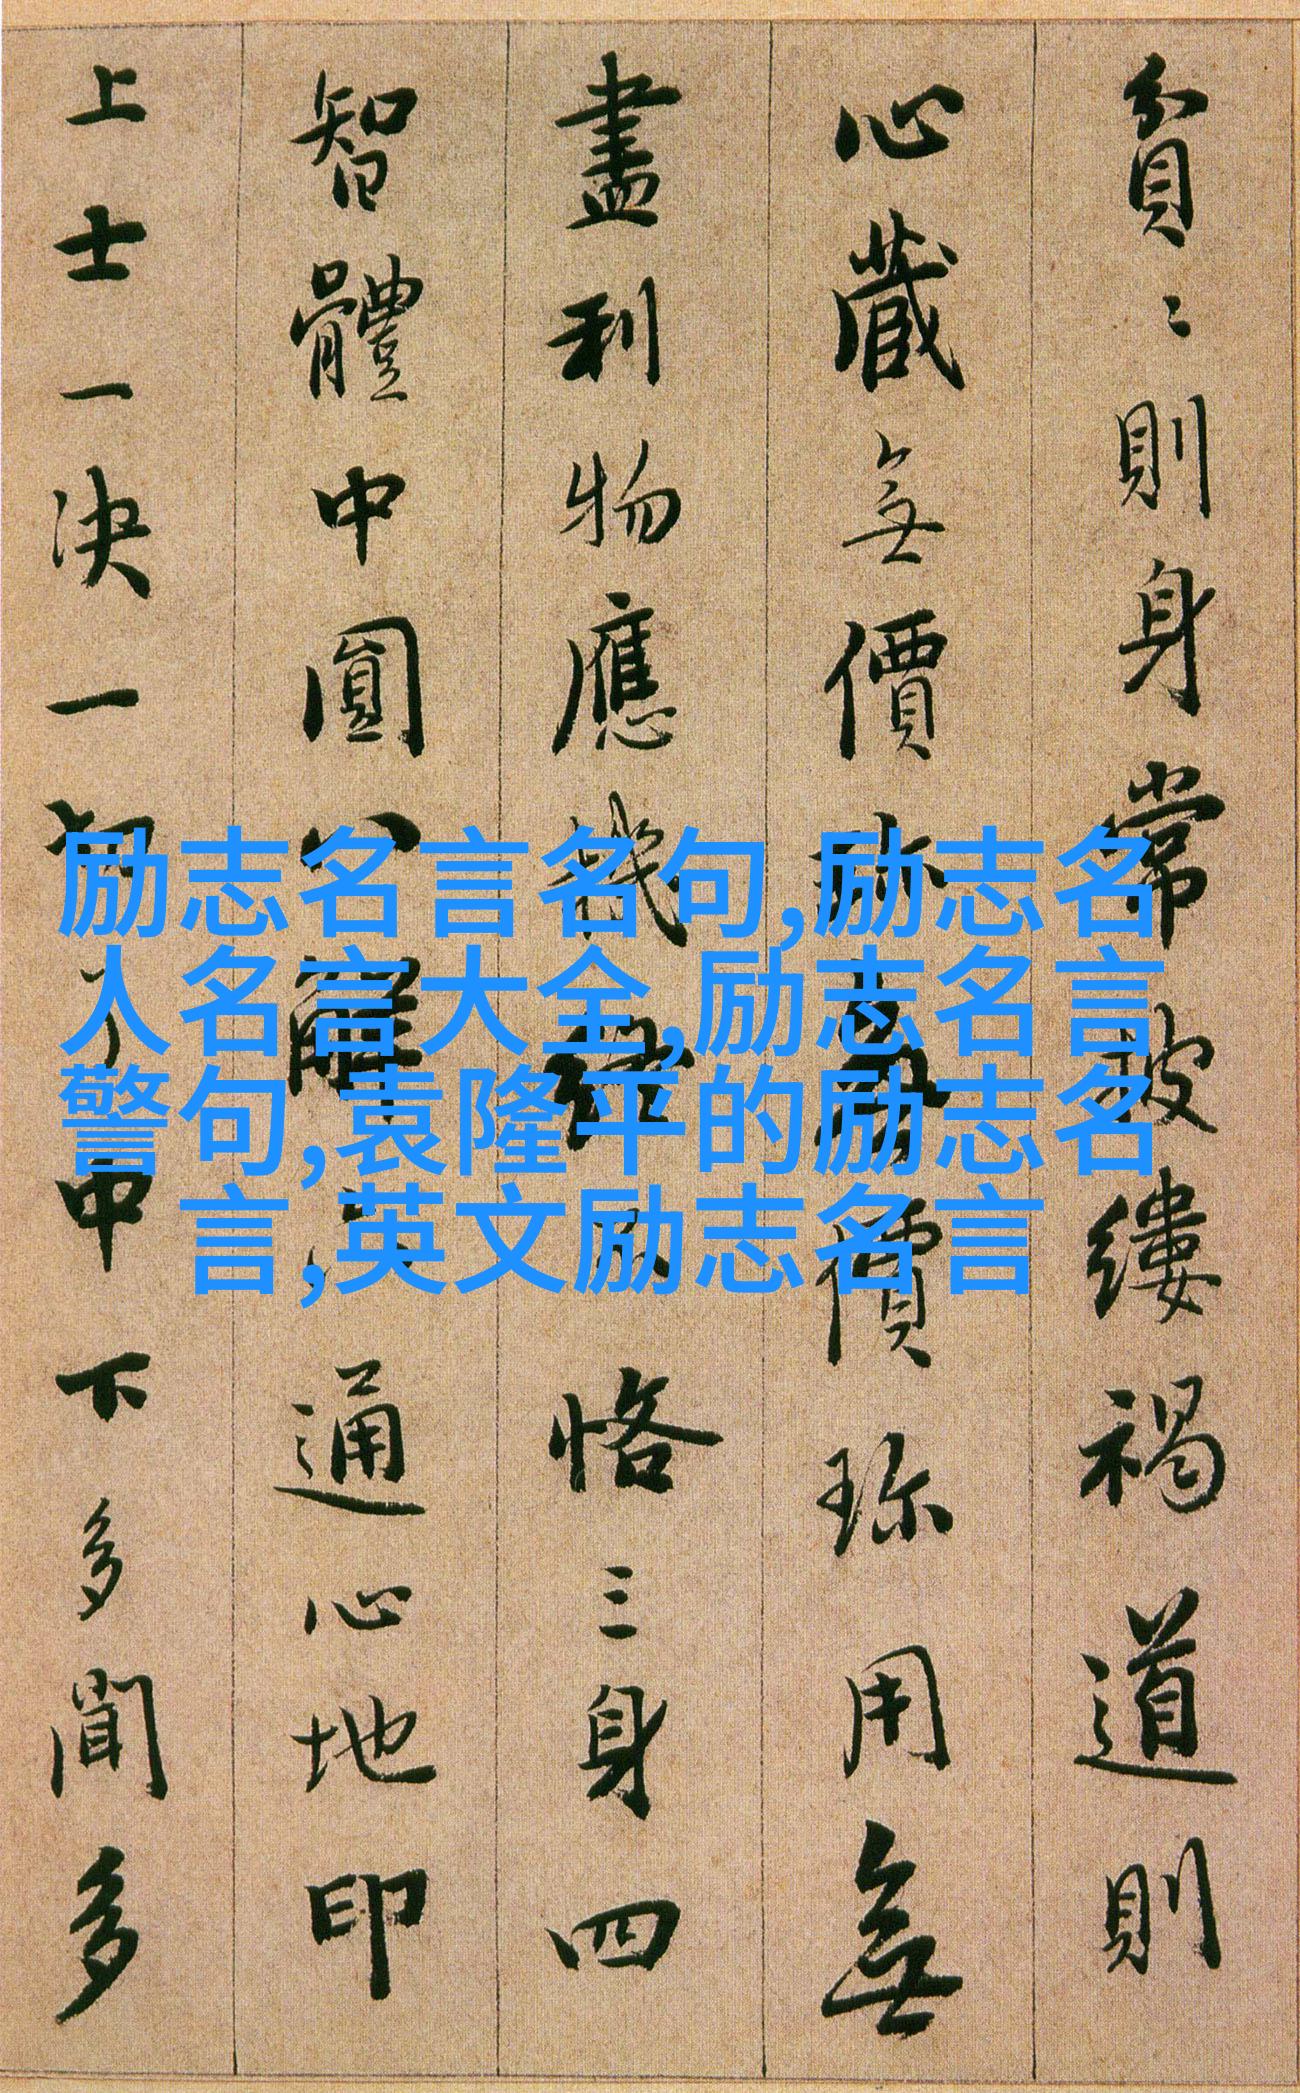 貧〻則身常披縷褐道則
心藏無價珎無價珎用無
盡利物應機終不恪三身四
智體中圓八解六通心地印
上士一决一切了中下多聞多
励志名言名句,励志名
人名言大全,励志名言
警句,袁隆平的励志名
言,英文励志名言